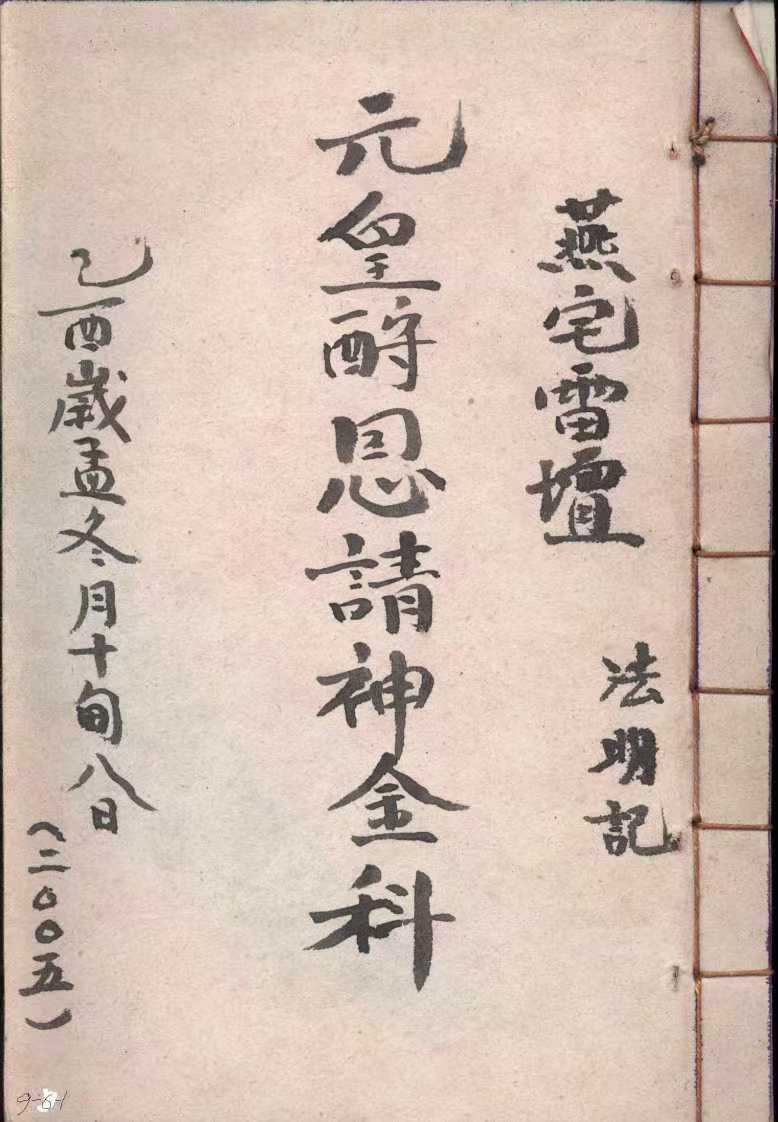 燕宅雷壇
法明記
元皇酧恩請神金科
乙酉歲孟冬月十旬八日
（二〇〇五）